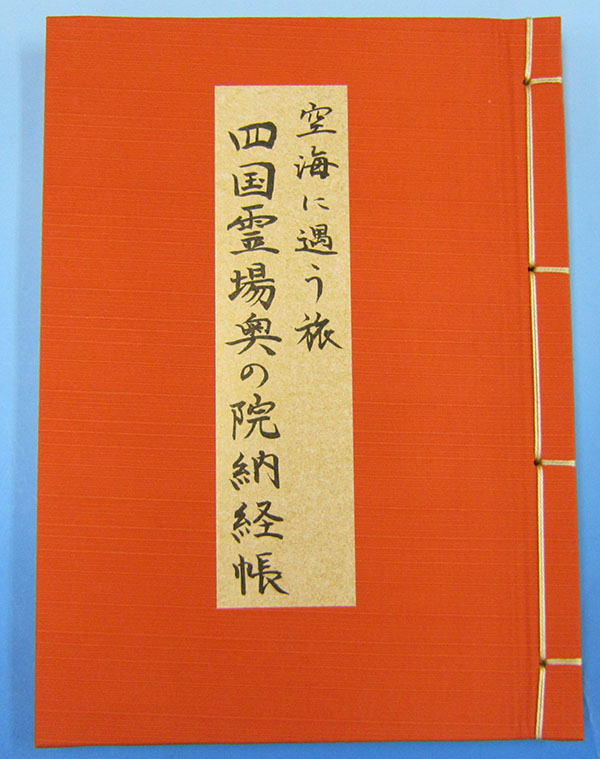 空海に遇う旅
四国霊場奥の院納経帳